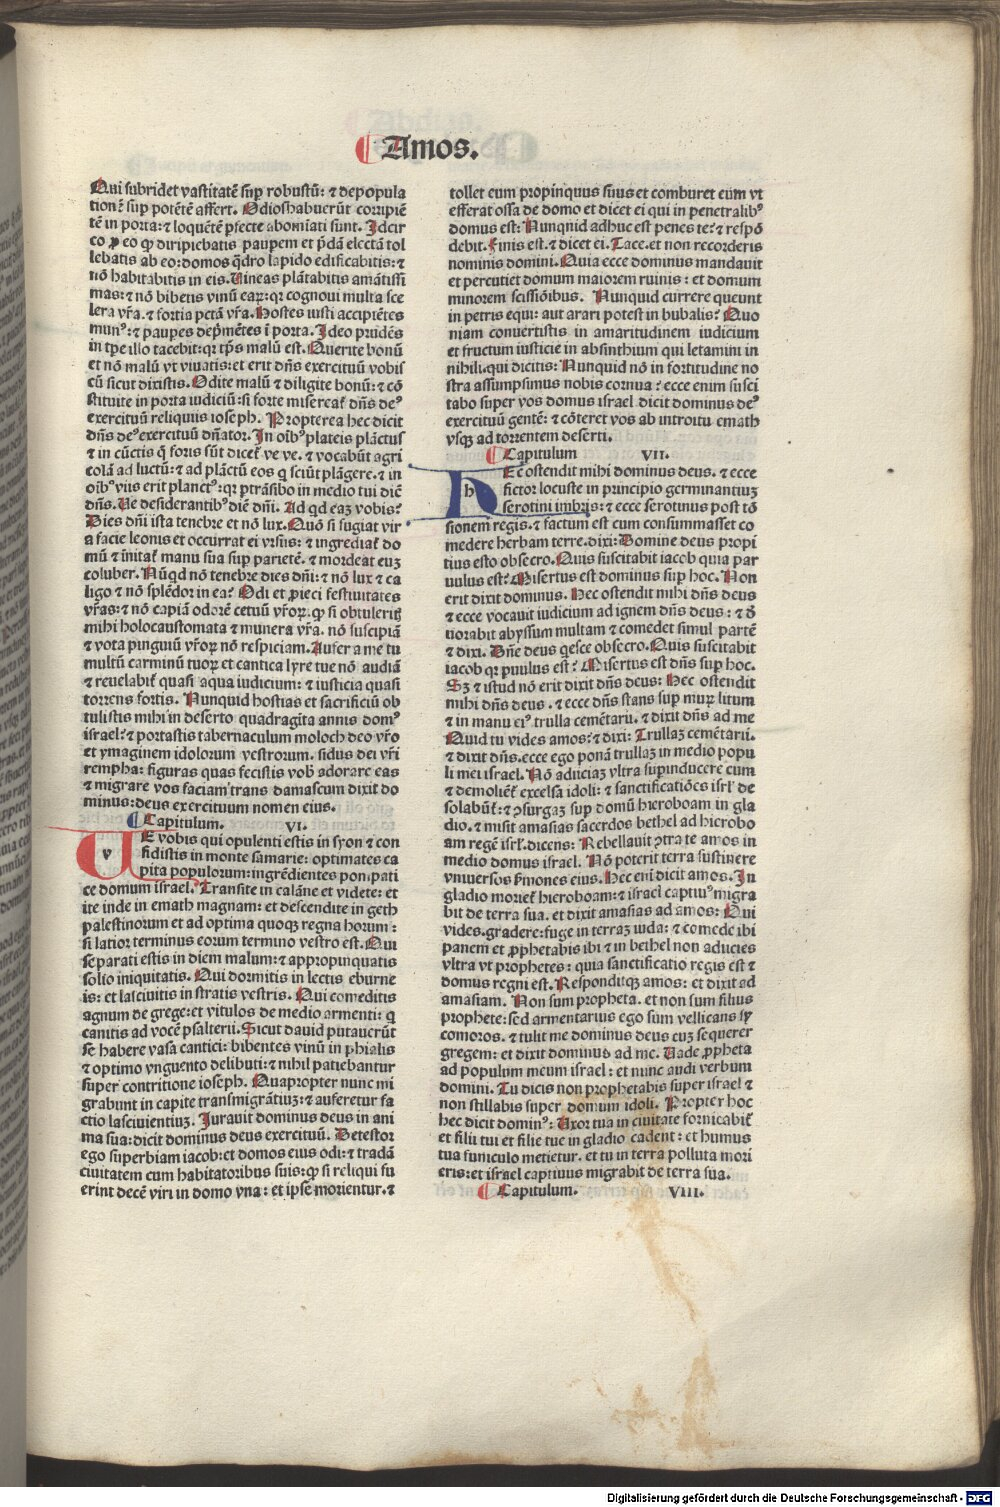 Amos.
Qui subridet vastitatē suꝑ robustū: ⁊ depopula
tionē suꝑ potētē affert. Odio habuerūt corripiē
tē in porta: ⁊ loquētē ꝑfecte abominati sunt. Idcir
co ꝓ eo ꝙ diripiebatis pauꝑem et p̄dā electā tol
lebatis ab eo: domos q̄dro lapido edificabitis: ⁊
nō habitabitis in eis. Vineas plātabitis amātissi
mas: ⁊ nō bibetis vinū eaꝝ: qꝛ cognoui multa sce
lera vr̄a. ⁊ fortia pctā vr̄a. Hostes iusti accipiētes
munꝰ: ⁊ pauꝑes dep̄mētes ī porta. Ideo prudēs
in tꝑe illo tacebit: qꝛ tꝑs malū est. Querite bonū
et nō malū vt viuatis: et erit dn̄s exercituū vobisc
cū sicut dixistis. Odite malū ⁊ diligite bonū: ⁊ cō
stituite in porta iudiciū: si forte misereat᷑ dn̄s deꝰ
exercituū reliquiis ioseph. Propterea hec dicit
dn̄s deꝰ exercituū dn̄ator. In oīb' plateis plāctus
⁊ in cūctis q̄ foris sūt dicet᷑ ve ve. ⁊ vocabūt agri
colā ad luctū: ⁊ ad plāctū eos q̄ sciūt plāgere. ⁊ in
oīb' viis erit planctꝰ: qꝛ ptrāsibo in medio tui dicē
dn̄s. Ve desiderantibꝰ diē dn̄i. Ad qd eaꝫ vobis?
Dies dn̄i ista tenebre et nō lux. Quō si fugiat vir
a facie leonis et occurrat ei vrsus: ⁊ ingrediat᷑ do
mū ⁊ īnitat᷑ manu sua suꝑ parietē. ⁊ mordeat euꝫ
coluber. Nūqd nō tenebre dies dn̄i: ⁊ nō lux ⁊ ca
ligo ⁊ nō splēdor in ea? Odi et ꝓieci festiuitates
vr̄as: ⁊ nō capiā odorē cetuū vr̄oꝝ. ꝙ si obtuleritꝭ
mihi holocaustomata ⁊ munera vr̄a. nō suscipiā
⁊ vota pinguiū vr̄oꝝ nō respiciam. Aufer a me tu
multū carminū tuoꝝ et cantica lyre tue nō audiā
⁊ reuelabit᷑ quasi aqua iudicium: ⁊ iusticia quasi
torrens fortis. Nunquid hostias et sacrificiū ob
tulistis mihi in deserto quadragita annis domꝰ
israel? ⁊ portastis tabernaculum moloch deo vr̄o
et ymaginem idolorum vestrorum. sidus dei vr̄i
rempha: figuras quas fecistis vob' adorare eas
⁊ migrare vos faciam trans damascum dixit do
minus: deus exercituum nomen eius.
Capitulum. VI.
v E vobis qui opulenti estis in syon ⁊ con
fidistis in monte samarie: optimates ca
pita populorum: ingrēdientes ponpati
ce domum israel. Transite in calāne et videte: et
ite inde in emath magnam: et descendite in geth
palestinorum et ad optima quoqꝫ regna horum:
si latior terminus eorum termino vestro est. Qui
separati estis in diem malum: ⁊ appropinquatis
solio iniquitatis. Qui dormitis in lectis eburne
is: et lasciuitis in stratis vestris. Qui comeditis
agnum de grege: et vitulos de medio armenti: q̄
canitis ad vocē psalterii. Sicut dauid putauerūt
se habere vasa cantici: bibentes vinū in phialis
⁊ optimo vnguento delibuti: ⁊ nihil patiebantur
super contritione ioseph. Quapropter nunc mi
grabunt in capite transmigrātiuꝫ: ⁊ auferetur fa
ctio lasciuientiuꝫ. Jurauit dominus deus in ani
ma sua: dicit dominus deus exercituū. Detestor
ego superbiam iacob: et domos eius odi: ⁊ tradā
ciuitatem cum habitatoribus suis: ꝙ si reliqui fu
erint decē viri in domo vna: et ipse morientur. ⁊
tollet eum propinquus suus et comburet eum vt
efferat ossa de domo et dicet ei qui in penetralibꝰ
domus est: Nunqnid adhuc est penes te? ⁊ respō
debit. Finis est. ⁊ dicet ei. Tace. et non recorderis
nominis domini. Quia ecce dominus mandauit
et percutiet domum maiorem ruinis: et domum
minorem scissiōibus. Nunquid currere queunt
in petris equi: aut arari potest in bubalis? Quo
niam conuertistis in amaritudinem iudicium
et fructum iusticie in absinthium qui letamini in
nihili. qui dicitis: Nunquid nō in fortitudine no
stra assumpsimus nobis cornua? ecce enim susci
tabo super vos domus israel dicit dominus deꝰ
exercituū gentē: ⁊ cōteret vos ab introitu emath
vsqꝫ ad torrentem deserti.
Capitulum VII.
h Ec ostendit mihi dominus deus. ⁊ ecce
fictor locuste in principio germinantiuꝫ
serotini imbris: ⁊ ecce serotinus post tō
sionem regis. ⁊ factum est cum consummasset co
medere herbam terre. dixi: Domine deus propi
tius esto obsecro. Quis suscitabit iacob quia par
uulus est? Misertus est dominus suꝑ hoc. Non
erit dixit dominus. Hec ostendit mihi dn̄s deus
⁊ ecce vocauit iudicium ad ignem dn̄s deus: ⁊ d̄
uorabit abyssum multam ⁊ comedet simul partē
⁊ dixi. Dn̄e deus q̄esce obsecro. Quis suscitabit
iacob qꝛ ꝑuulus est? Misertus est dn̄s suꝑ hoc.
Sꝫ ⁊ istud nō erit dixit dn̄s deus: Hec ostendit
mihi dn̄s deus. ⁊ ecce dn̄s stans suꝑ muꝝ litum
⁊ in manu eiꝰ trulla cemētarii. ⁊ dixit dn̄s ad me
Quid tu vides amos? ⁊ dixi: Trullaꝫ cemētarii.
⁊ dixit dn̄s. ecce ego ponā trullaꝫ in medio popu
li mei israel. Nō adiiciaꝫ vltra suꝑinducere eum
⁊ demoliet᷑ excelsa idoli: ⁊ sanctificatiōes isrl' de
solabūt᷑: ⁊ ꝯsurgaꝫ suꝑ domū hieroboam in gla
dio. ⁊ misit amasias sacerdos bethel ad hierobo
am regē isrl'. dicens: Rebellauit ꝯtra te amos in
medio domus israel. Nō poterit terra sustinere
vniuersos s̄mones eius. Hec eni dicit amos. In
gladio moriet᷑ hieroboam: ⁊ israel captiuꝰ migra
bit de terra sua. et dixit amasias ad amos: Qui
vides. gradere: fuge in terraꝫ iuda: ⁊ comede ibi
panem et ꝓphetabis ibi ⁊ in bethel non adiicies
vltra vt prophetes: quia sanctificatio regis est ⁊
domus regni est. Responditqꝫ amos: et dixit ad
amasiam. Non sum propheta. et non sum filius
prophete: sed armentarius ego sum vellicans sy
comoros. ⁊ tulit me dominus deus cuꝫ sequerer
gregem: et dixit dominus ad me. Vade ꝓpheta
ad populum meum israel: et nunc audi verbum
domini. Tu dicis non prophetabis super israel ⁊
non stillabis super domum idoli. Propter hoc
hec dicit dominꝰ: Uxor tua in ciuitate fornicabit᷑
et filii tui et filie tue in gladio cadent: et humus
tua funiculo metietur. et tu in terra polluta mori
eris: et israel captiuus migrabit de terra sua.
Capitulum. VIII.
Digitalisierung gefördert durch die Deutsche Forschungsgemeinschaft - DFG